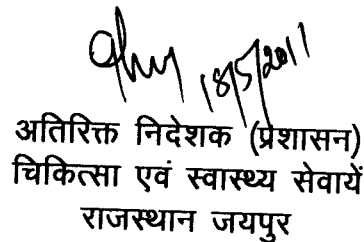 18/5/2011
अतिरिक्त निदेशक (प्रशासन)
चिकित्सा एवं स्वास्थ्य सेवायें
राजस्थान जयपुर